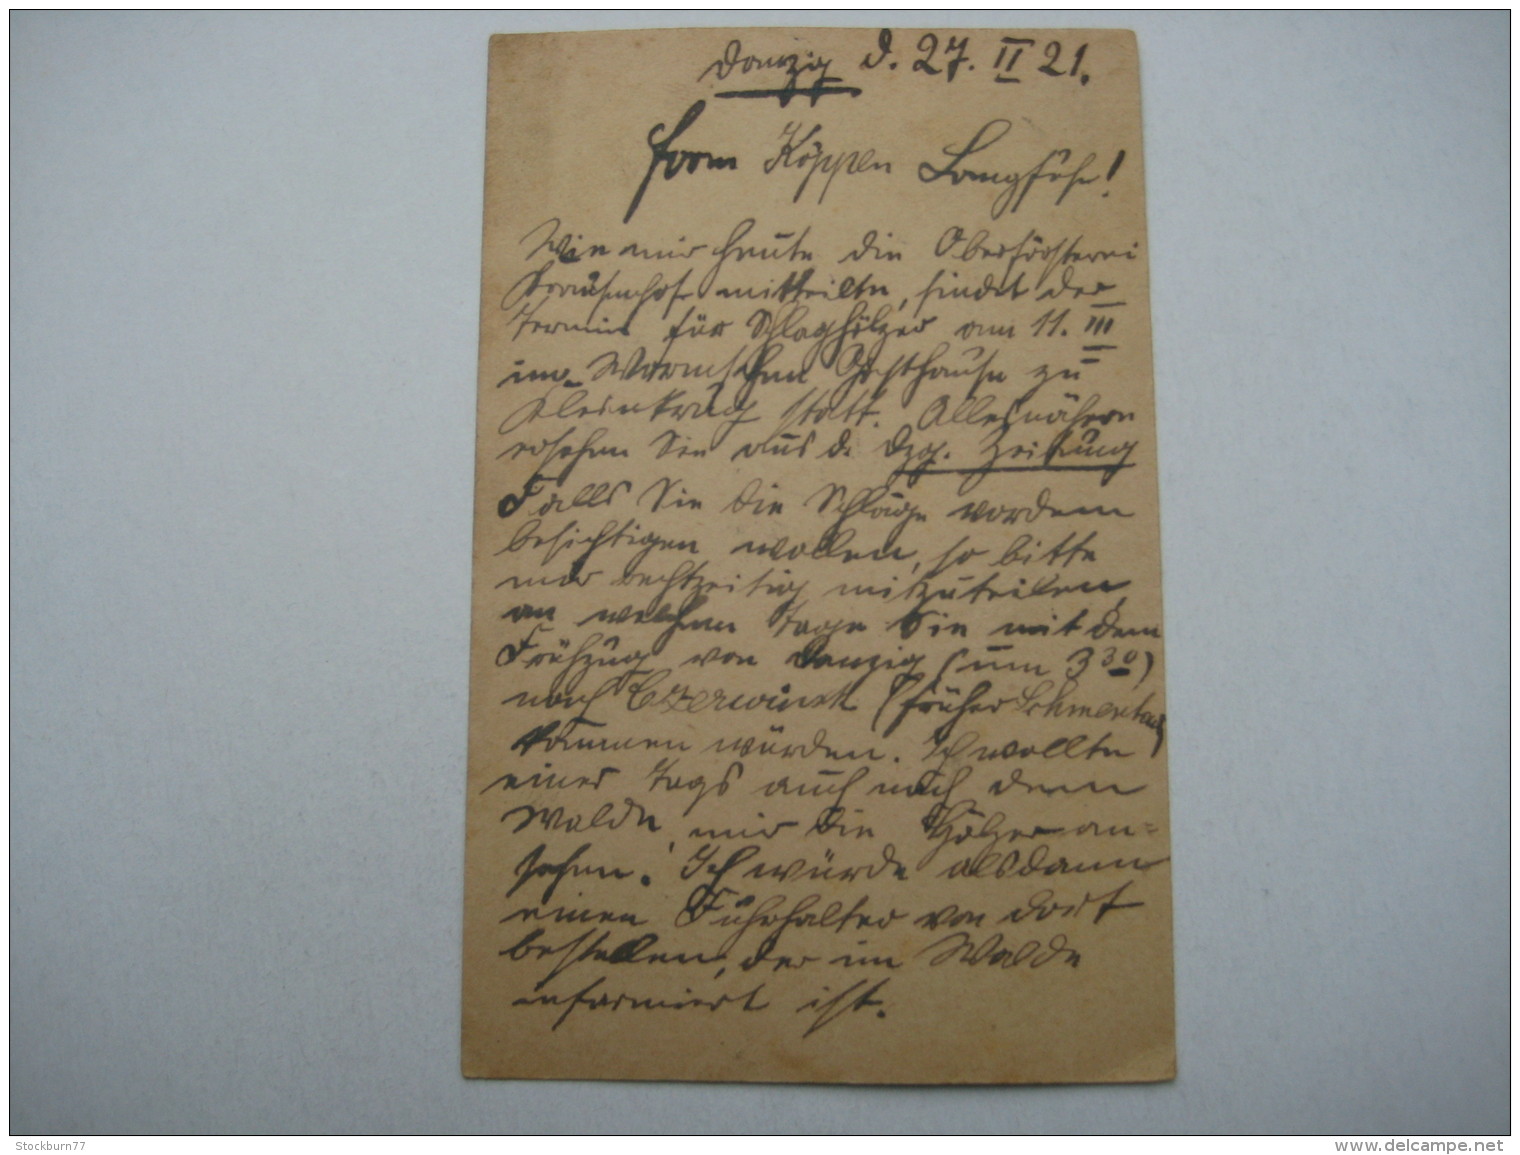 Danzig d. 27. II 21.
Firma Köppen Langfuhr!
Wie mir heute die Oberförsterei
Krausenhof mitteilte, findet der
Termin für Schlaghölzer am 11. III
im Warmschen Gasthause zu
Kleinkrug statt. Alles nähere
ersehen Sie aus d. Dzg. Zeitung
Falls Sie die Schläge vordem
besichtigen wollen, so bitte
mir rechtzeitig mitzuteilen,
an welchem Tage Sie mit dem
Frühzug von Danzig (um 3 30)
nach Czerwinsk (früher Schmentau)
kommen würden. Ich wollte
eines Tags auch nach dem
Walde, mir die Hölzer an=
sehen. Ich würde alsdann
einen Fuhrhalter von dort
bestellen, der im Walde
informiert ist.
Stockburn77
www.delcampe.net